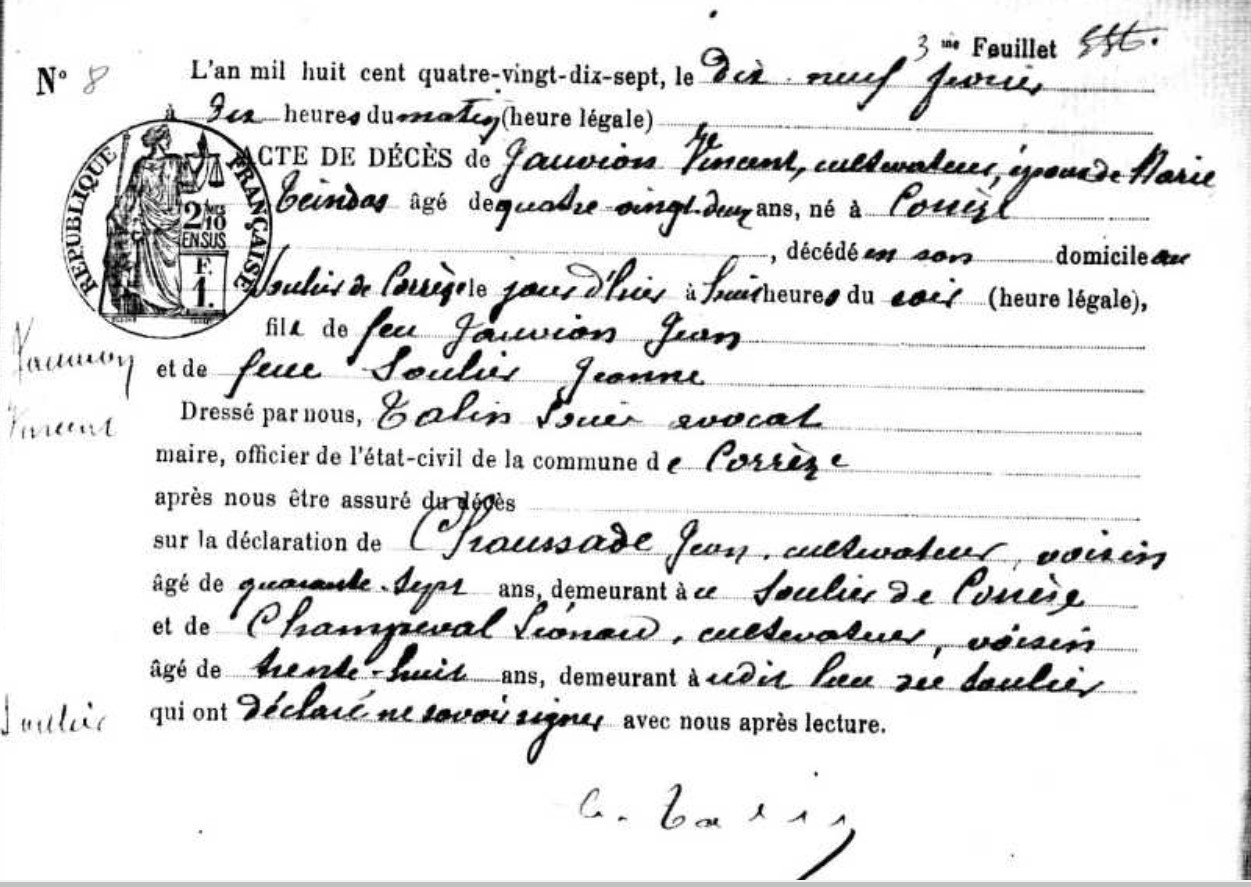 3 me Feuillet
N° 8 L'an mil huit cent quatre-vingt-dix-sept, le dix neuf
à dix heures du matin (heure légale)
ACTE DE DÉCÈS de Jauvion Vincent, cultivateur, époux de Marie
Teindas âgé de quatre vingt deux ans, né à Corrèze
, décédé en son domicile au
Soulier de Corrèze le jour d'hier à huit heures du soir (heure légale),
fils de feu Jauvion Jean
et de feue Soulier Jeanne
Dressé par nous, Talin avocat
maire, officier de l'état-civil de la commune de Corrèze
après nous être assuré du décès
sur la déclaration de Chaussade Jean, cultivateur, voisin
âgé de quarante-sept ans, demeurant à Soulier de Corrèze
et de Champeval Léonard, cultivateur, voisin
âgé de trente-huit ans, demeurant audit lieu du Soulier
qui ont déclaré ne savoir signer avec nous après lecture.
RÉPUBLIQUE FRANÇAISE
2/10 EN SUS
F. 1.
Jauvion
Vincent
Soulier